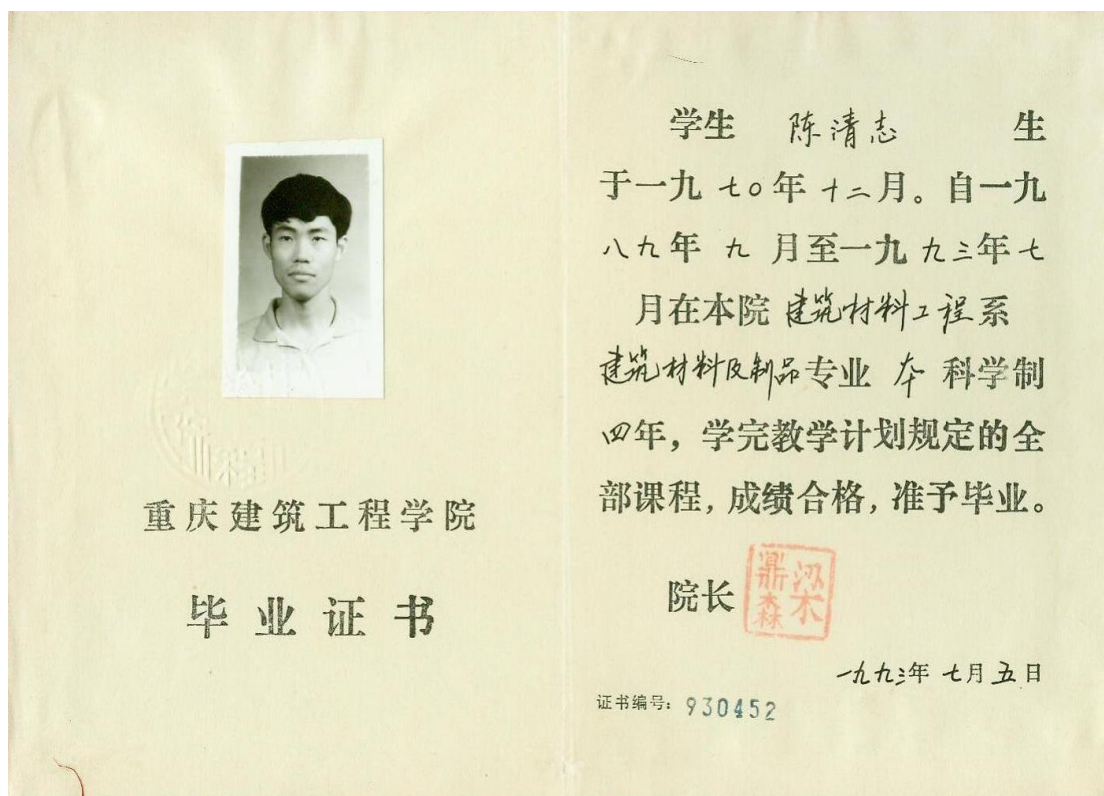 重庆建筑工程学院
毕业证书
学生 陈清志 生
于一九七〇年十二月。自一九
八九年 九 月至一九九三年七
月在本院 建筑材料工程系
建筑材料及制品专业 本 科学制
四年，学完教学计划规定的全
部课程，成绩合格，准予毕业。
院长 梁鼎森
一九九三年 七月五日
证书编号：930452